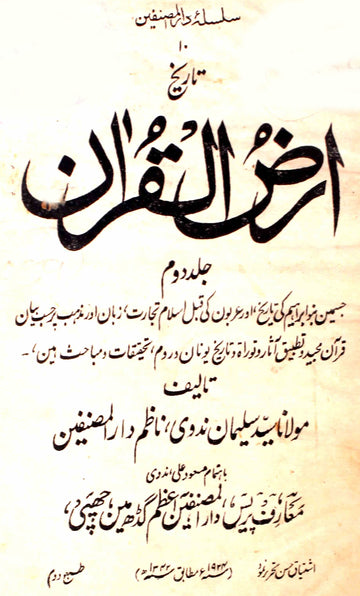 سلسلۂ دارالمصنفین
۱۰
تاریخ
ارض القرآن
جلد دوم
جسمین بنو ابراہیم کی تاریخ، اور عربون کی قبل اسلام تجارت، زبان اور مذہب پر حسب بیان
قرآن مجید و تطبیق آثار و توراۃ و تاریخ یونان و روم، تحقیقات و مباحث ہین،۔
تالیف
مولانا سید سلیمان ندوی، ناظم دارالمصنفین
باہتمام مسعود علی ندوی
معارف پریس، دارالمصنفین اعظم گڈھ مین چھپی،
طبع دوم (سنہ ۱۹۲۴ء مطابق سنہ ۱۳۴۲ھ) اشتیاق حسن